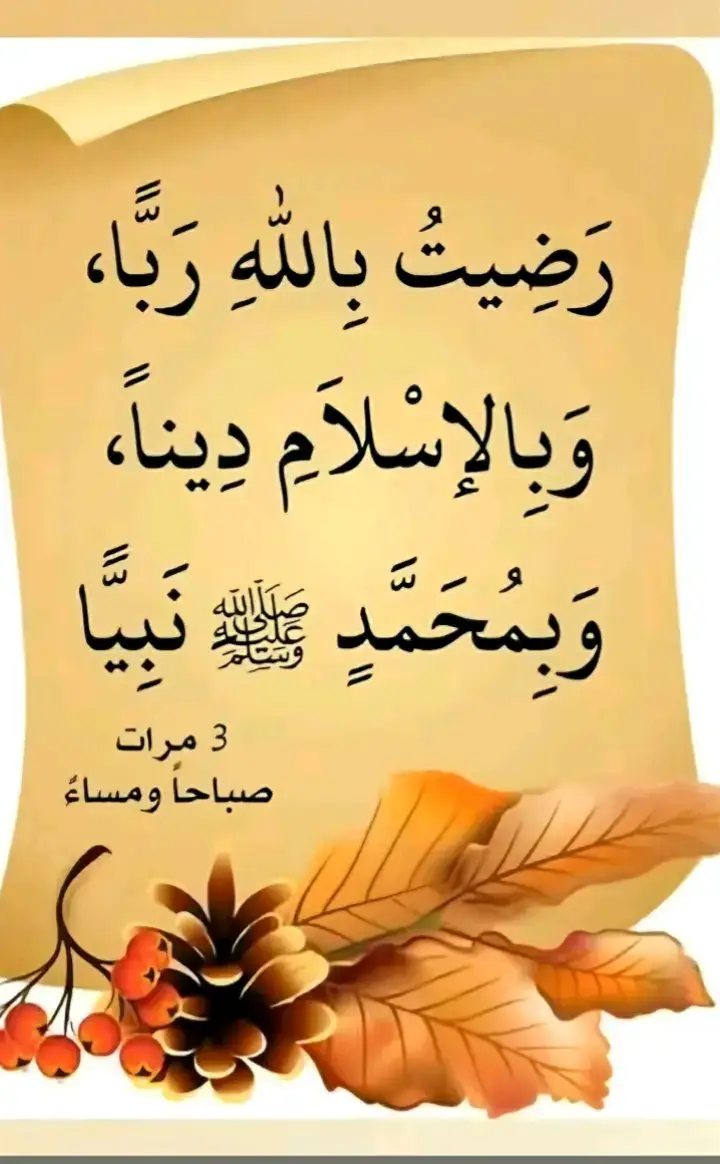 رَضِيتُ بِاللهِ رَبًّا،
وَبِالإسْلاَمِ دِيناً،
وَبِمُحَمَّدٍ ﷺ نَبِيًّا
3 مرات
صباحاً ومساءً